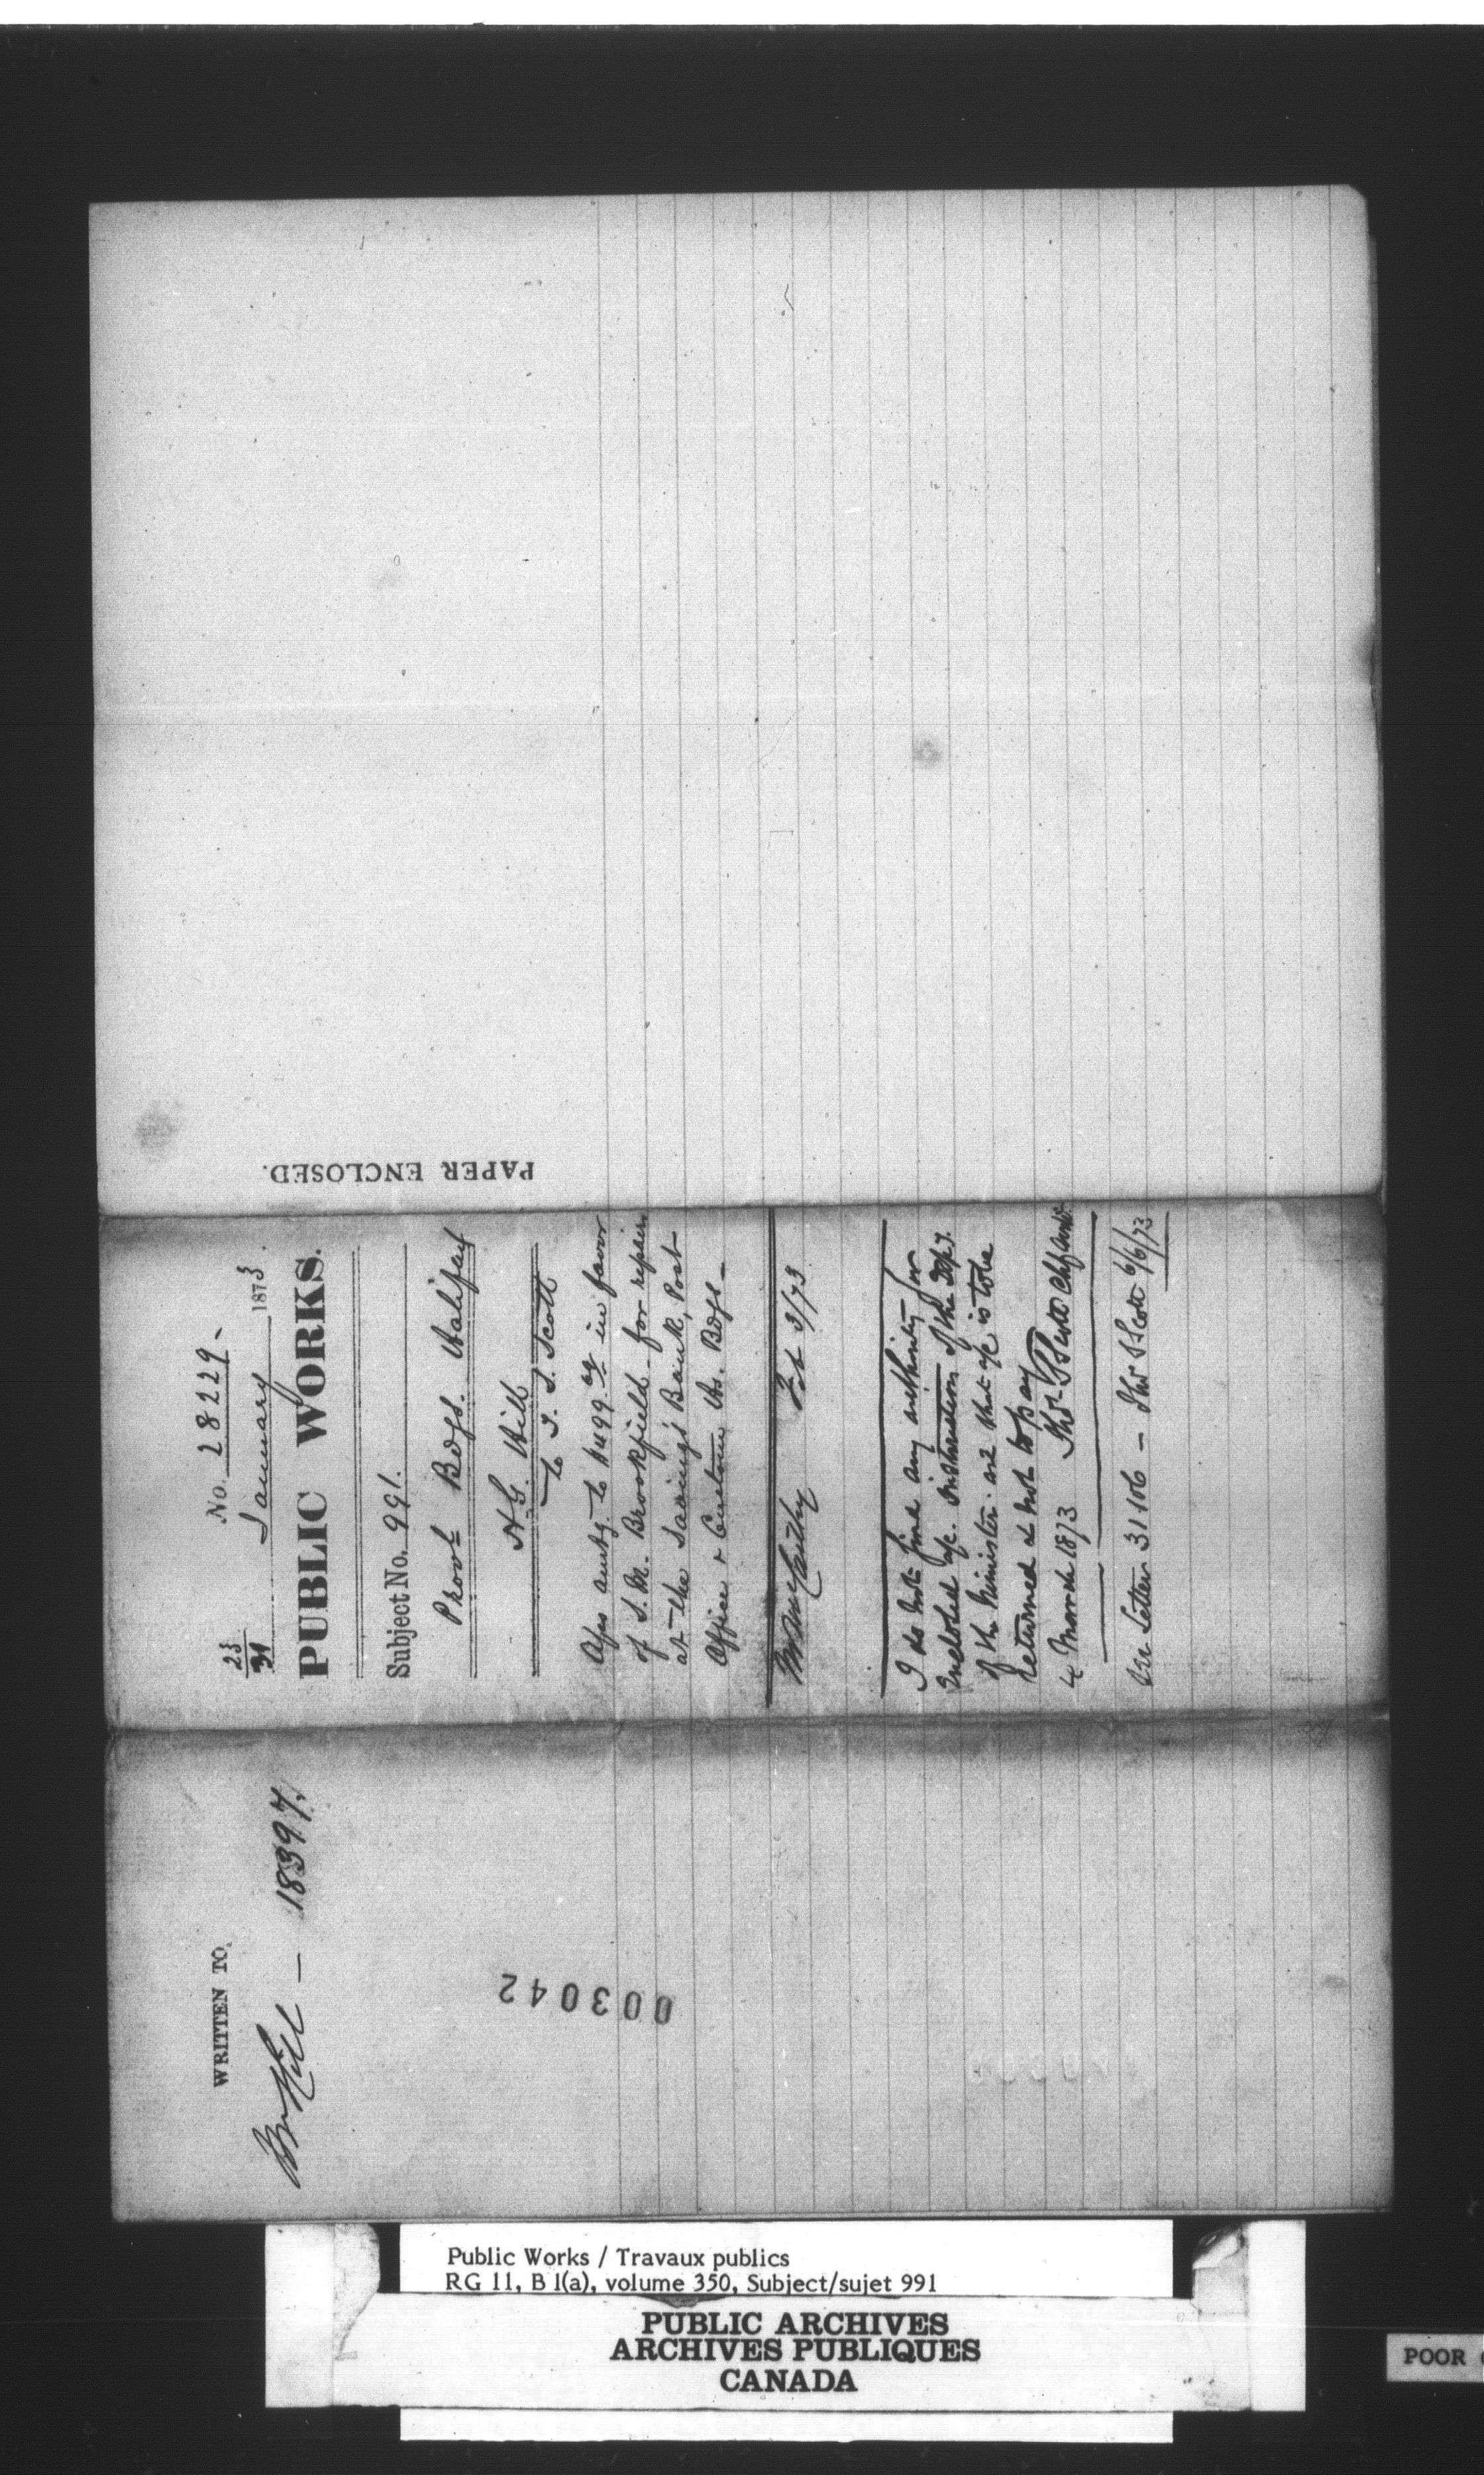 PAPER ENCLOSED.
No. 28229 -
23
31 January 1873.
PUBLIC WORKS.
Subject No. 991.
Provl Bdgs. Halifax
H. G. Hill
to T. S. Scott
in favor
of S. M. Brookfield for repairs
at the Savings Bank, Post
Office & Custom Hs. Bdgs -
Feb 3/73
I do not find any authority for
Enclosed a/c. Instructions of the Dept.
of the Minister are that a/c is to be
returned & not to pay
4 March 1873 Thos S Scott Chf Archt
See Letter 31106 - Thos S Scott 6/6/73
WRITTEN TO.
Mr Hill - 18397.
003042
Public Works / Travaux publics
RG 11, B 1(a), volume 350, Subject/sujet 991
PUBLIC ARCHIVES
ARCHIVES PUBLIQUES
CANADA
POOR